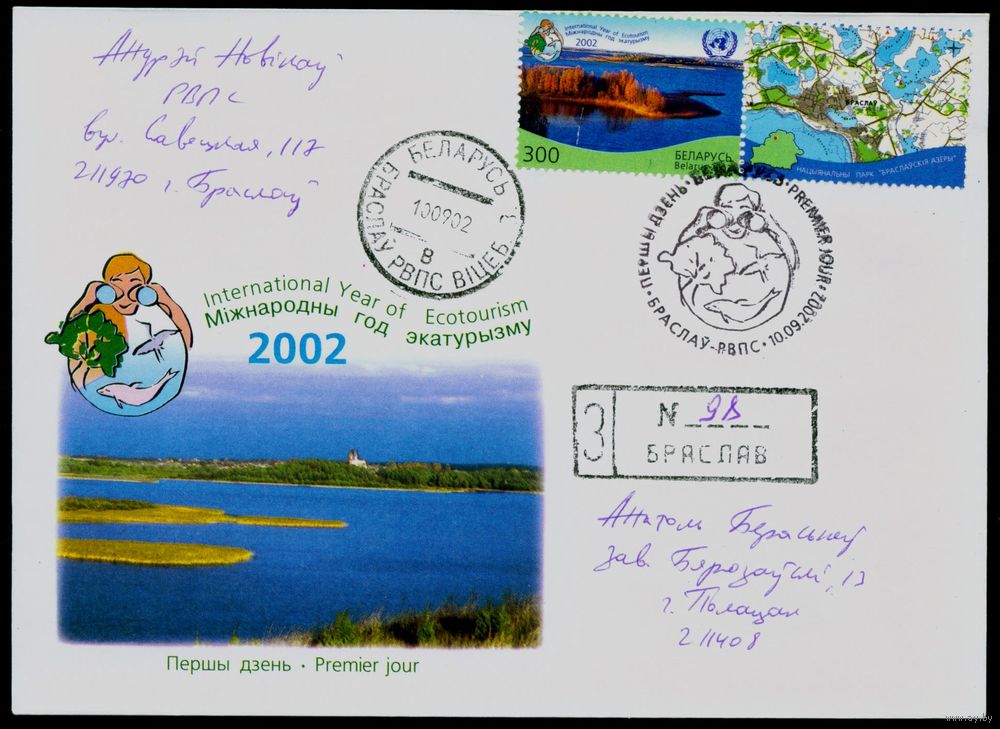 Андрэй Новікаў
РВПС
вул. Савецкая, 117
211970 г. Браслаў
International Year of Ecotourism
Міжнародны год экатурызму
2002
300
БЕЛАРУСЬ
Belarus
БРАСЛАЎ
НАЦЫЯНАЛЬНЫ ПАРК "БРАСЛАЎСКІЯ АЗЁРЫ"
БЕЛАРУСЬ
100902
В
БРАСЛАЎ РВПС ВІЦЕБ
ПЕРШЫ ДЗЕНЬ • БЕЛАРУСЬ • PREMIER JOUR
БРАСЛАЎ-РВПС • 10.09.2002
International Year of Ecotourism
Міжнародны год экатурызму
2002
З
N 98
БРАСЛАВ
Анатоль
зав. 13
г. Полацак
211408
Першы дзень · Premier jour